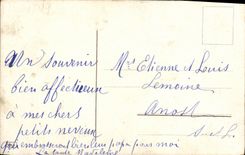 Un souvenir
bien affectueux
à mes chers
petits neveux
embrasser bien leur papa pour moi
La tante Madeleine
Mrs Etienne & Louis
Lemoine
Anost
S.-&-L.